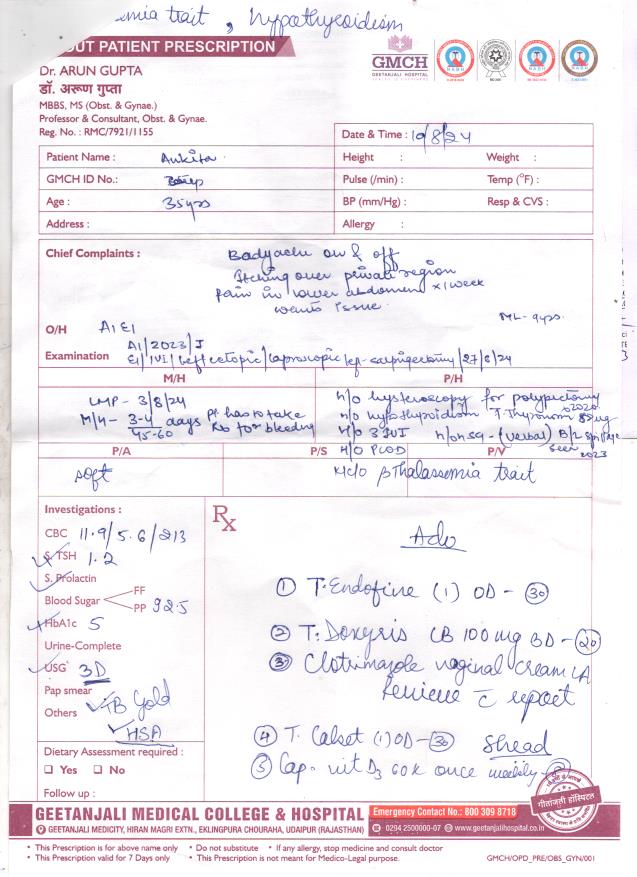 mia trait, hypothyroidism
OUT PATIENT PRESCRIPTION
GMCH
GEETANJALI HOSPITAL
Dr. ARUN GUPTA
डॉ. अरूण गुप्ता
MBBS, MS (Obst. & Gynae.)
Professor & Consultant, Obst. & Gynae.
Reg. No. : RMC/7921/1155
Date & Time : 10/8/24
Patient Name : Ankita
Height : Weight :
GMCH ID No.:
Pulse (/min) : Temp (°F) :
Age : 35yrs
BP (mm/Hg) : Resp & CVS :
Address :
Allergy :
Chief Complaints : Badyache on & off
Itching over private region
Pain in lower abdomen x 1 week
wants issue
ML- 9yrs.
O/H A1E1
A1/2023/J
Examination E1/IUI/Left ectopic/laproscopic lef-salpigectomy/27/6/24
M/H P/H
LMP - 3/8/24
H/O hysteroscopy for polypectomy 2020
M/H - 3-4 days Pt has to take
45-60 for bleeding
H/O hypothyroidism T. Thyronorm
H/O 3 IUI H/O HSG - (verbal) B/L
seen 2023
P/A P/S H/O PCOD P/V
soft
K/C/O β Thalassemia trait
Investigations :
Rx
CBC 11.9/5.6/213
Adv
S. TSH 1.2
S. Prolactin
① T. Endofine (1) OD - 30
Blood Sugar FF
PP 92.5
HbA1c 5
② T. Doxyris LB 100 mg BD - 20
Urine-Complete
③ Clotrimazole vaginal cream LA
USG 3D
Review c report
Pap smear
Others TB Gold
HSA
④ T. Calset (1) OD - 30
Dietary Assessment required :
⑤ Cap. vit D3 60k once weekly
Yes No
Follow up :
गीतांजली हॉस्पिटल
GEETANJALI MEDICAL COLLEGE & HOSPITAL
Emergency Contact No.: 800 309 8718
GEETANJALI MEDICITY, HIRAN MAGRI EXTN., EKLINGPURA CHOURAHA, UDAIPUR (RAJASTHAN)
0294 2500000-07 www.geetanjalihospital.co.in
• This Prescription is for above name only • Do not substitute • If any allergy, stop medicine and consult doctor
• This Prescription valid for 7 Days only • This Prescription is not meant for Medico-Legal purpose.
GMCH/OPD_PRE/OBS_GYN/001